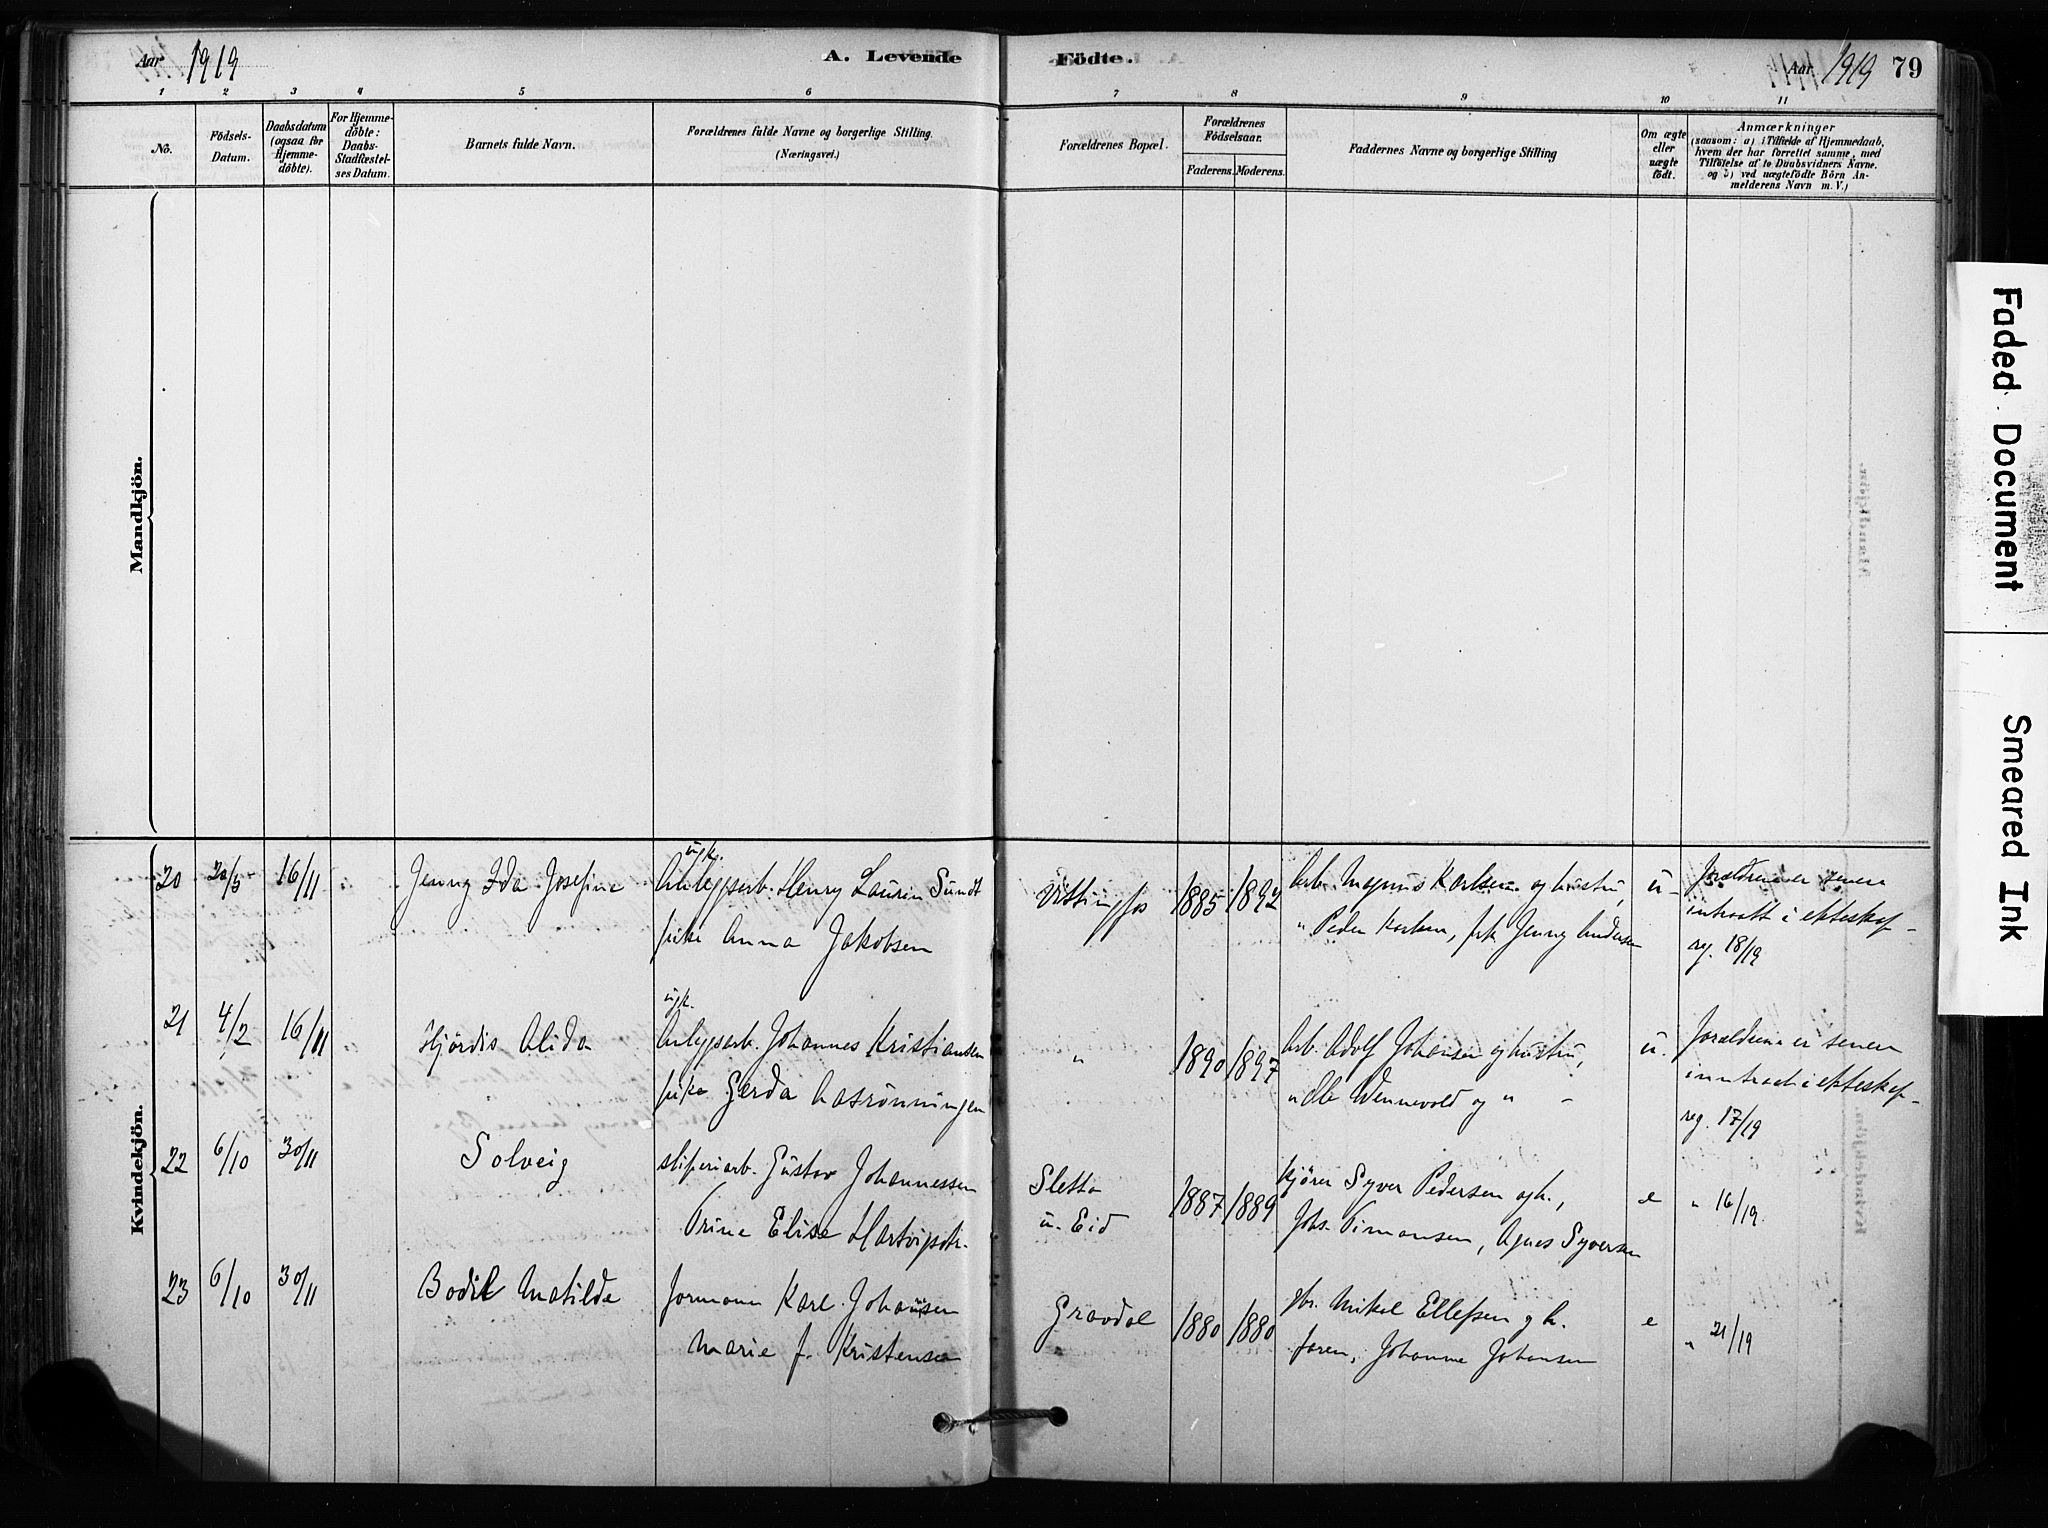 Aar 1919
A. Levende
Födte.
Aar 1919 79
1 2 3 4 5 6 7 8 9 10 11
No.
Födsels-
Datum.
Daabsdatum
(ogsaa for
Hjemme-
döbte).
For Hjemme-
döbte:
Daabs-
Stadfæstel-
ses Datum.
Barnets fulde Navn.
Forældrenes fulde Navne og borgerlige Stilling.
(Næringsvei.)
Forældrenes Bopæl.
Forældrenes
Födselsaar.
Faderens. Moderens.
Faddernes Navne og borgerlige Stilling
Om ægte
eller
uægte
födt.
Anmærkninger
(saasom: a) i Tilfælde af Hjemmedaab,
hvem der har forrettet samme, med
Tilföielse af to Daabsvidners Navne.
og b) ved uægtefödte Börn An-
melderens Navn m. V.)
Mandkjön.
Kvindekjön.
ugk.
20 20/5 16/11 Jenny Ida Josefine Anlegsarb. Henry Laurin Sundt Vittingfos 1885 1892 Arb. Magnus Karlsen og hustru, u. Forældrene er senere
pike Anna Jakobsen " Peder Karlsen, frk Jenny Andersen inntraatt i ekteskap
reg. 18/19
ugk.
21 4/2 16/11 Hjördis Alida Anlegsarb. Johannes Kristiansen " 1890 1897 Arb. Adolf Johansen og hustru, u. Forældrene er senere
pike Gerda Aasrönningen " Ole Wennevold og " - inntraadt i ekteskap
reg. 17/19
22 6/10 30/11 Solveig sliperiarb. Gustav Johannessen Sletta 1887 1889 kjörer Syver Pedersen og h., e " 16/19.
Trine Elise Hartvigsdtr. u. Eid Johs. Simonsen, Agnes Syversen
23 6/10 30/11 Bodil Matilde formann Karl Johansen Gravdal 1880 1880 gbr. Mikal Ellefsen og h. e " 21/19
Marie f. Kristensen faren, Johanne Johansen
Faded Document
Smeared Ink